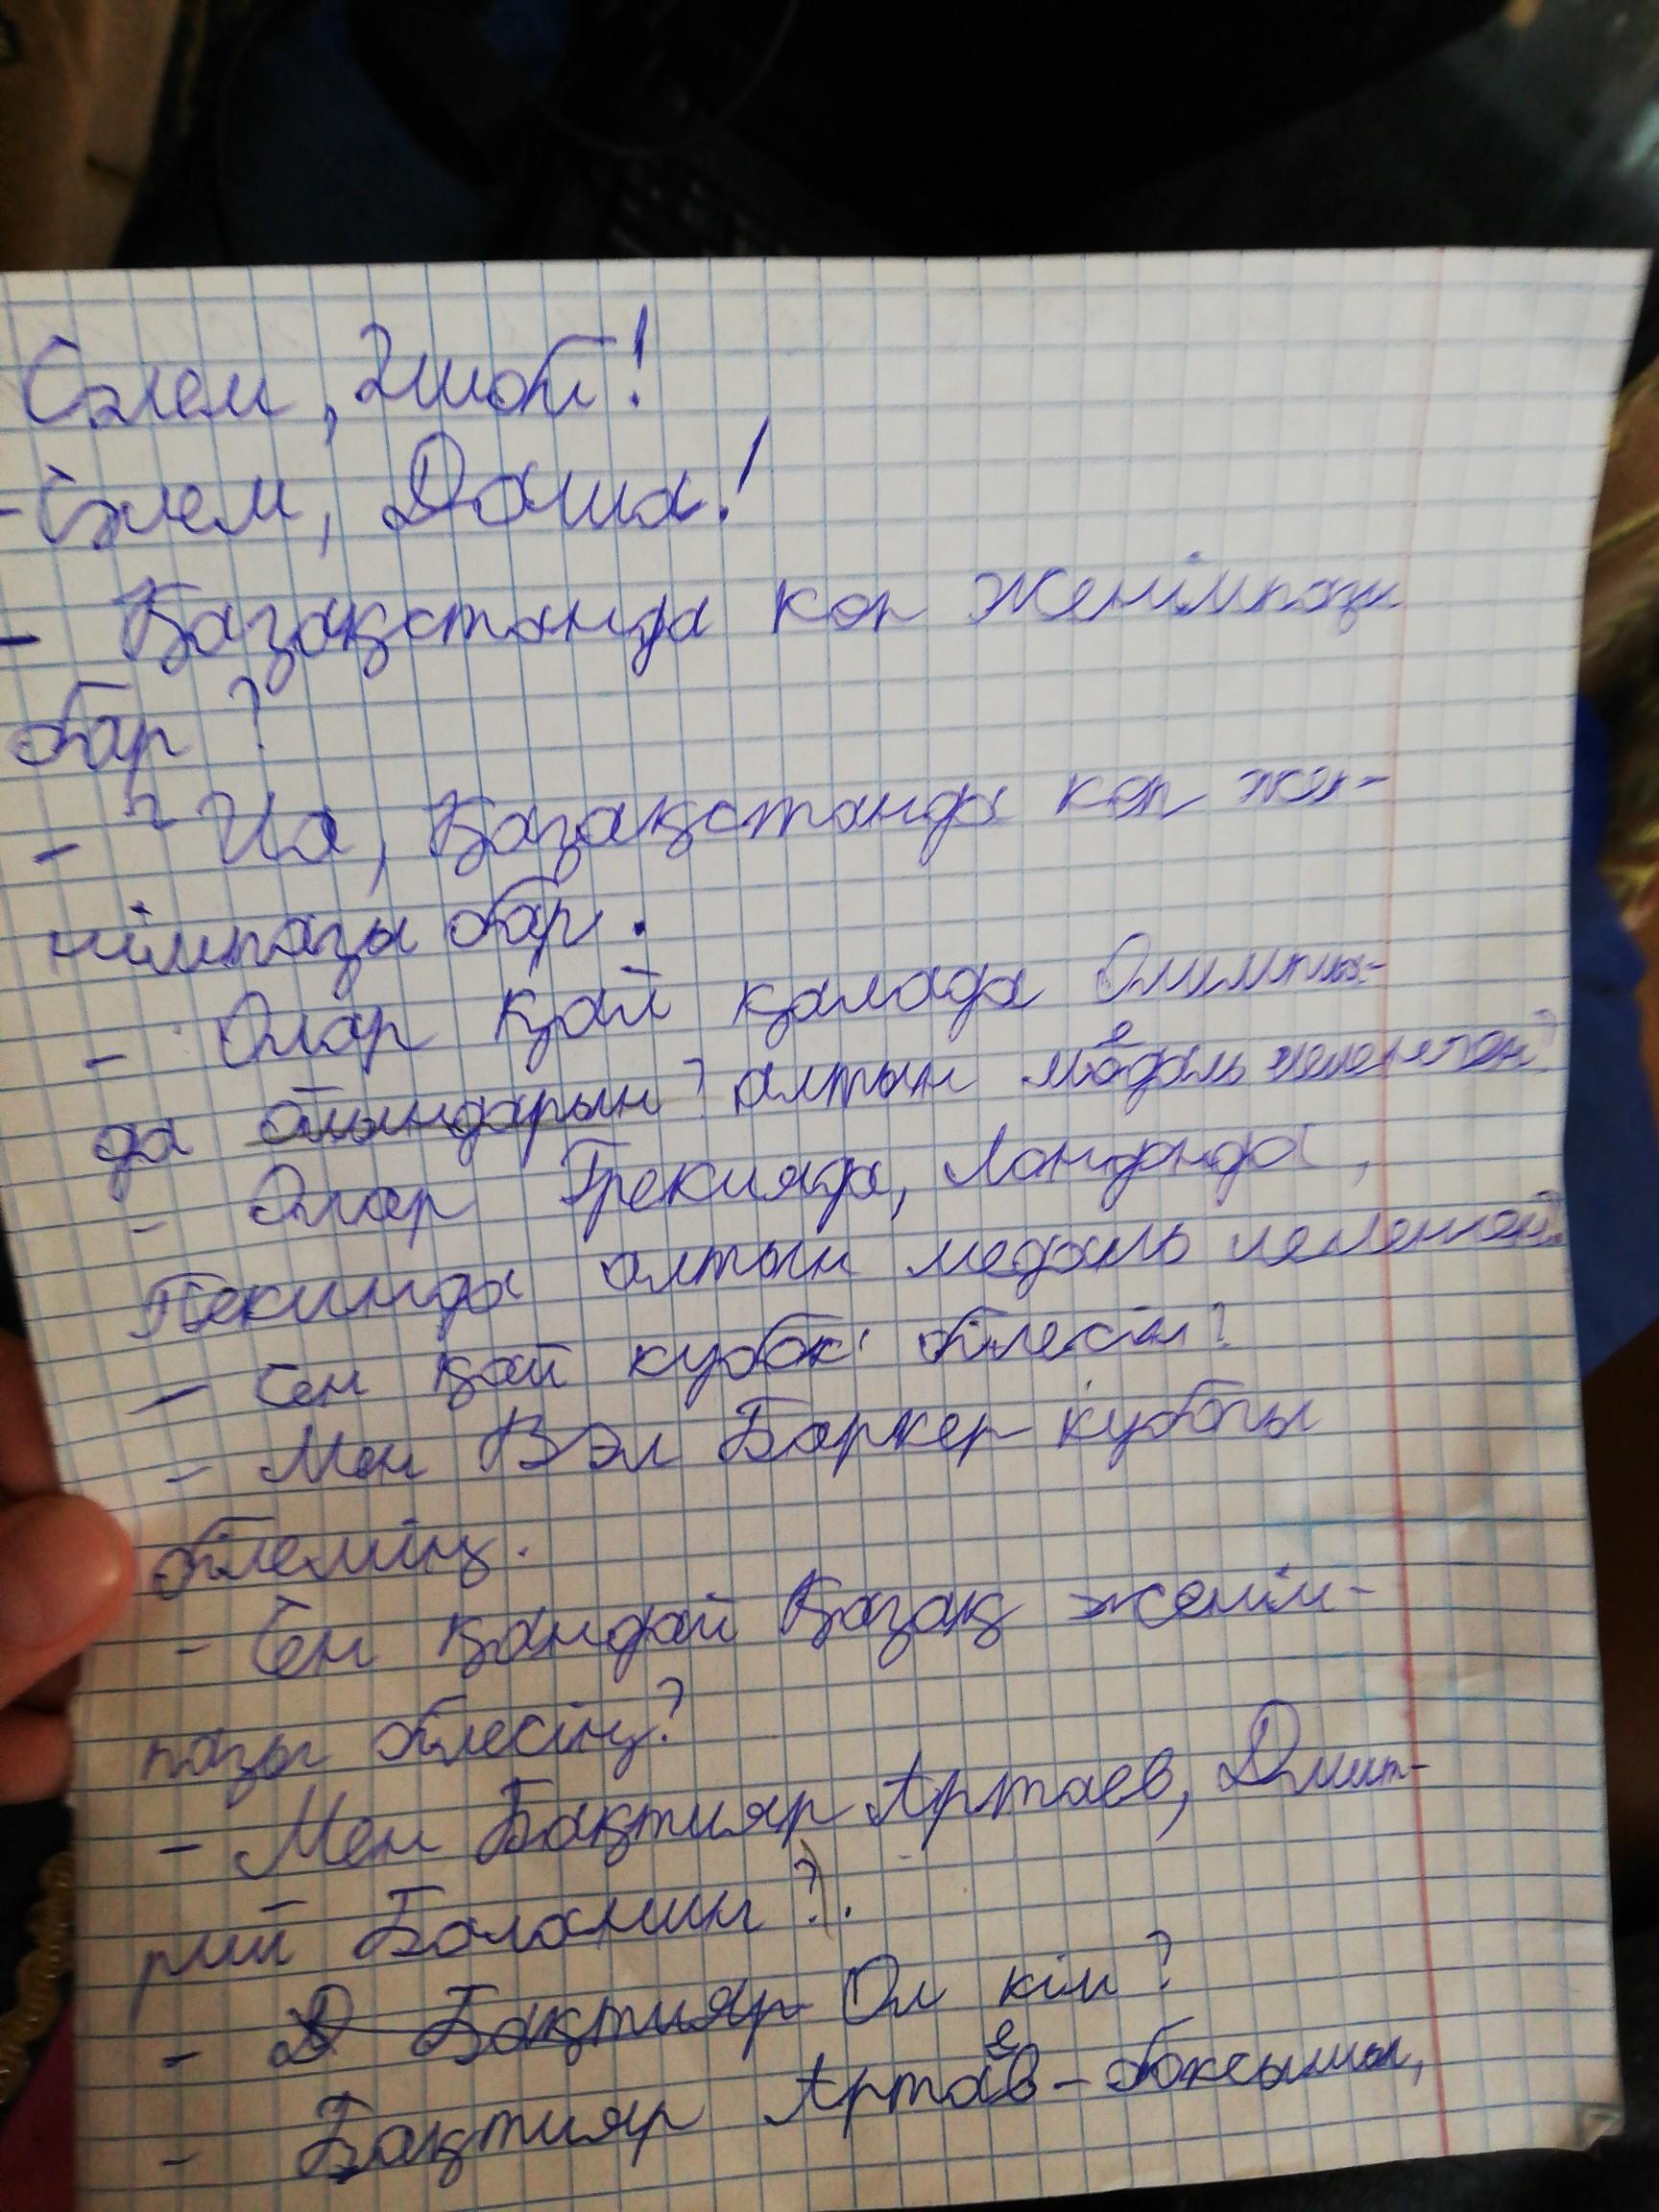 Сәлем,
-Сәлем, Даша!
- Қазақстанда коп женімпазы
бар?
- Иа, Қазақстанда коп же-
німпазы бар.
- Олар қай қалада Олимпиа-
да ойындарын? алтын медаль иеленген?
- Олар Грекияда, Лондонда,
Пекинда алтын медаль иеленген.
- Сен қай кубок білесін?
- Мен Вэл Баркер кубогы
білемің.
- Сен қандай Қазақ женім-
пазы білесің?
- Мен Бақтияр Артаев, Дмит-
рий Баланин?).
- Бақтияр Ол кім?
- Бақтияр Артаев - боксышы,